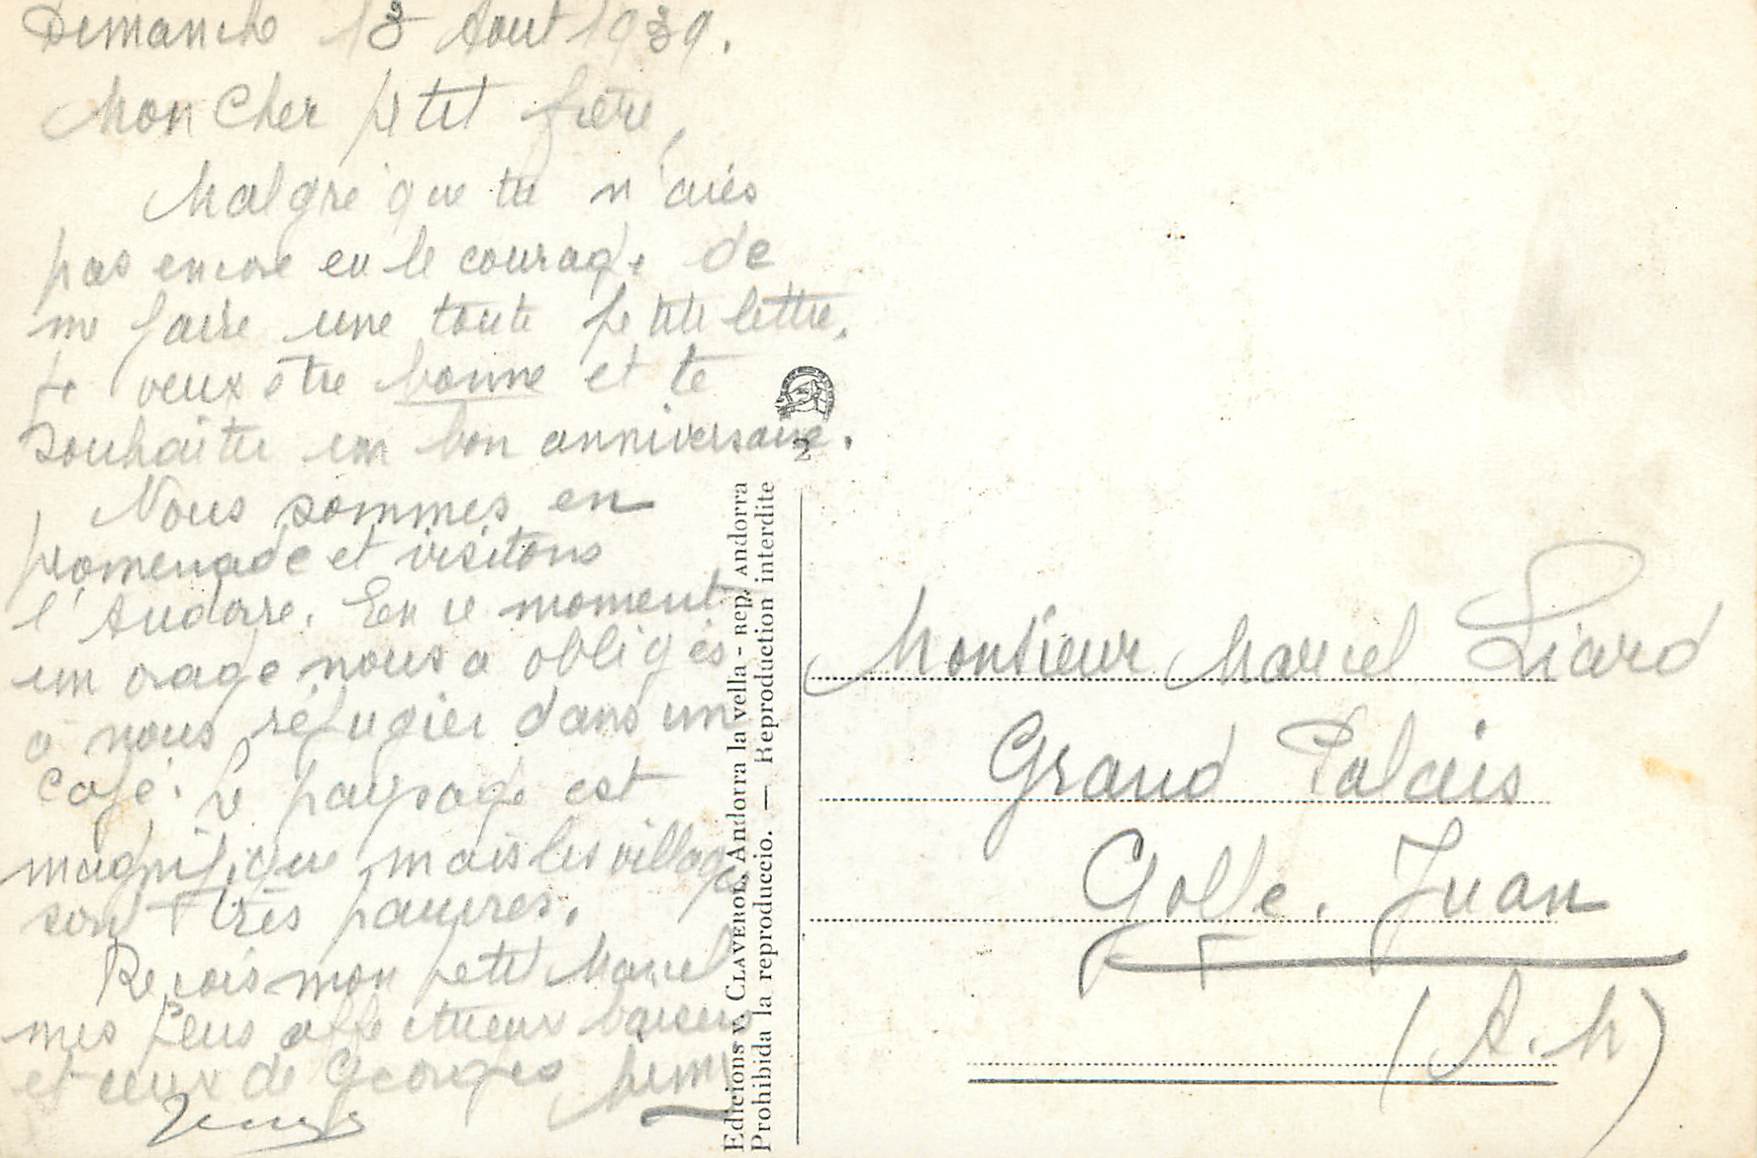 Dimanche 13 Aout 1939.
Mon Cher petit frère,
Malgré que tu n'aies
pas encore eu le courage de
me faire une toute petite lettre,
je veux être bonne et te
souhaiter un bon anniversaire.
Nous sommes en
promenade et visitons
l'Andorre. En ce moment
un orage nous a obligés
à nous réfugier dans un
café. Le paysage est
magnifique, mais les villages
sont très pauvres.
Reçois mon petit Marcel
mes plus affectueux baisers
et ceux de Georges
2
Edicions V. CLAVEROL, Andorra la vella - REP. ANDORRA
Prohibida la reproduccio. — Reproduction interdite
Monsieur Marcel Liard
Grand Palais
Golfe. Juan
(A.M)